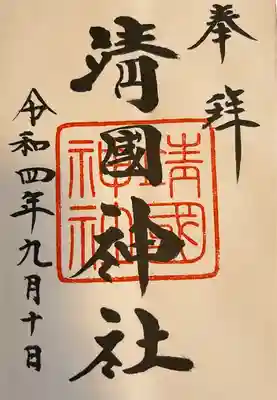 奉拝
靖國神社
靖國神社
令和四年九月十日